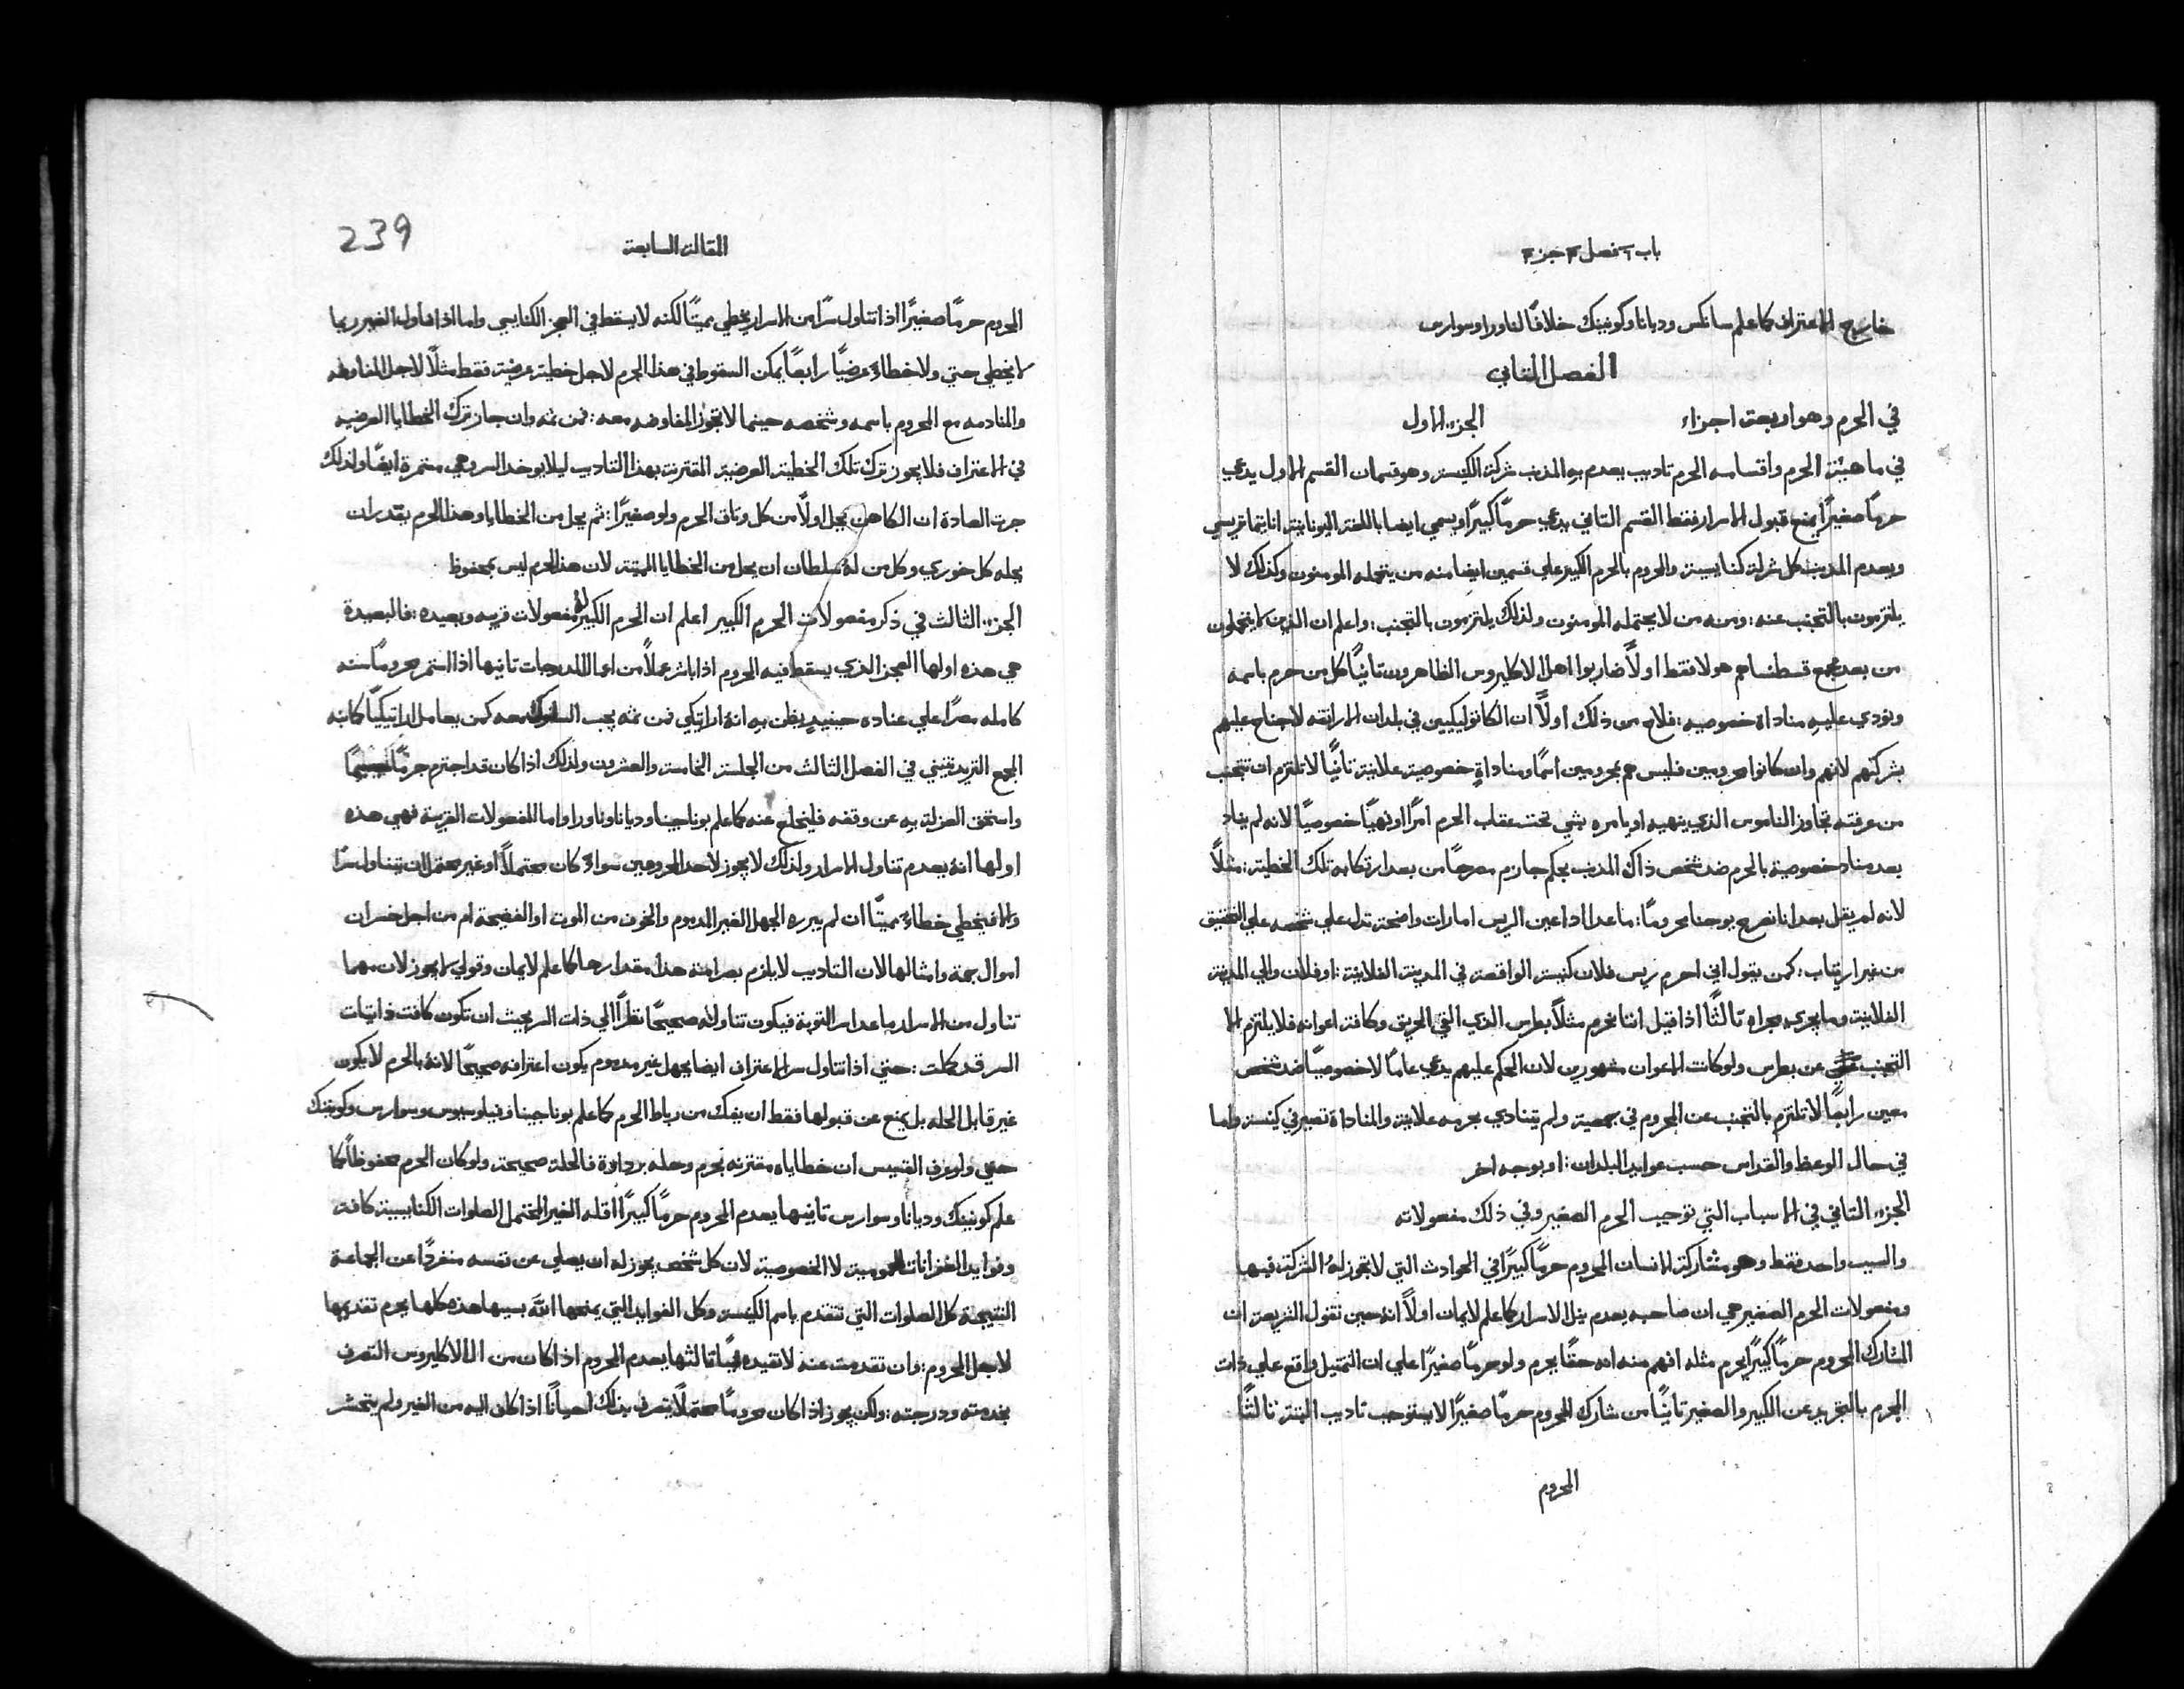 باب ٦ فصل ٢ جزء ٢
خارج الاعتراف كما علم سانكس وديانا وكونينك خلافًا لناورا وسوارس
الفصل الثاني
في الحرم وهو اربعة اجزاء الجزء الاول
في ماهية الحرم واقسامه الحرم تاديب يعدم به المذنب شركة الكنيسة وهو قسمان القسم الاول يدعي
حرمًا صغيرًا يمنع قبول الاسرار فقط القسم الثاني يدعي حرمًا كبيرًا ويسمي ايضا باللغة اليونانية اناتيما تريسي
ويعدم المذنب كل شركة كنايسية والمحروم بالحرم الكبير علي قسمين ايضا منه من يحتمله المومنون وكذلك لا
يلتزمون بالتجنب عنه: ومنه من لا يحتمله المومنون ولذلك يلتزمون بالتجنب: واعلم ان الذين لا يحتملون
من بعد مجمع قسطنسا هم هولا فقط اولًا ضاربوا اهل الاكليروس الظاهرون ثانيًا كل من حرم باسمه
ونودي عليه مناداة خصوصيه: فلاح من ذلك اولًا ان الكاثوليكيين في بلدان الاراتقه لا جناح عليهم
بشركتهم لانهم وان كانوا محرومين فليس هم بمحرومين اسمًا ومناداةٍ خصوصية علانية ثانيًا لا تلتزم ان تتجنب
من عرفته تجاوز الناموس الذي ينهيه او يامره بشي تحت عقاب الحرم امرًا او نهيًا خصوصيًا لانه لم يناد
بعد مناد خصوصية بالحرم ضد شخص ذاك المذنب بحكم جازم مصرحًا من بعد ارتكابه تلك الخطية: مثلًا
لانه لم يقل بعد انا نصرح يوحنا محرومًا: ما عدا اذا عين الريس امارات واضحة تدل علي شخصه علي التحقيق
من غير ارتياب: كمن يقول اني احرم ريس فلان كنيسة الواقعة في المدينة الفلانية: او فلان والي المدينة
الفلانية وما يجري مجراه ثالثًا اذا قيل اننا نحرم مثلًا بطرس الذي القي الحريق وكافة اعوانه فلا يلتزم الا
التجنب عن بطرس ولو كانت الاعوان مشهورين لان الحكم عليهم يدعي عامًا لا خصوصيًا ضد شخص
معين رابعًا لا تلتزم بالتجنب عن المحروم في جمعية ولم يتنادي بحرمه علانية والمناداة تصير في كنيسة واما
في حال الوعظ والقداس حسب عوايد البلدان: او بوجه اخر
الجزء الثاني في الاسباب التي توجب الحرم الصغير وفي ذلك مفعولاته
والسبب واحد فقط وهو مشاركة الانسان المحروم حرمًا كبيرًا في الحوادث التي لا تجوز له الشركة فيها
ومفعولات الحرم الصغير هي ان صاحبه يعدم نيل الاسرار كما علم لايمان اولًا انه حين تقول الشريعة ان
المشارك المحروم حرمًا كبيرًا يحرم مثله افهم منه انه حقًا يحرم ولو حرمًا صغيرًا علي ان التمثيل واقع علي ذات
الحرم بالتجريد عن الكبير والصغير ثانيًا من شارك المحروم حرمًا صغيرًا لا يستوجب تاديب البتة ثالثًا
المحروم
239
المقالة السابعة
المحروم حرمًا صغيرًا اذا تناول سرًا من الاسرار يخطي مميتًا لكنه لا يسقط في العجز الكنايسي واما اذا ناول الغير ربما
لا يخطي حتي ولا خطاءً عرضيًا رابعًا يمكن السقوط في هذا الحرم لاجل خطية عرضية فقط مثلًا لاجل المفاوضه
والمنادمه مع المحروم باسمه وشخصه حينما لا تجوز المفاوضه معه: فمن ثم وان جاز ترك الخطايا العرضيه
في الاعتراف فلا يجوز ترك تلك الخطية العرضية المقترنة بهذا التاديب ليلا يوخذ السر وهي مستمرة ايضًا ولذلك
جرت العادة ان الكاهن يحل اولًا من كل وثاق الحرم ولو صغيرًا: ثم يحل من الخطايا وهذا الحرم يقدر ان
يحله كل خوري وكل من له سلطان ان يحل من الخطايا المميتة لان هذا الحرم ليس بمحفوظ
الجزء الثالث في ذكر مفعولات الحرم الكبير اعلم ان الحرم الكبير له مفعولات قريبه وبعيده: فالبعيدة
هي هذه اولها العجز الذي يسقط فيه المحروم اذا باشر عملًا من اعمال الدرجات ثانيها اذا استمر محرومًا سنه
كامله مصرًا علي عناده حينيذٍ يظن به انه اراتيكي فمن ثم يجب السلوك معه كمن يعامل اراتيكيًا كانه
المجمع التريدنتيني في الفصل الثالث من الجلسة الخامسة والعشرين ولذلك اذا كان قد اجترم جرمًا جسيمًا
واستحق العزلة به عن وقفه فليخلع عنه كما علم بوناجينا وديانا وناورا واما المفعولات القريبة فهي هذه
اولها انه يعدم تناول الاسرار ولذلك لا يجوز لاحد المحرومين سواءً كان محتملًا او غير محتمل ان يتناول سرًا
والا فيخطي خطاءً مميتًا ان لم يبرره الجهل الغير المذموم والخوف من الموت او الفضيحة ام من اجل خسران
اموال جمة وامثالها لان التاديب لا يلزم بصرامة هذا مقدارها كما علم لايمان وقولي لا يجوز لان مهما
تناول من الاسرار ما عدا سر التوبة فيكون تناوله صحيحًا نظرًا الي ذات السر بحيث ان تكون كافة ذاتيات
السر قد كملت: حتي اذا تناول سر الاعتراف ايضا بجهل غير مذموم يكون اعترافه صحيحًا لانه بالحرم لا يكون
غير قابل الحله بل يمنع عن قبولها فقط ان يفك من رباط الحرم كما علم بوناجينا وفيلوسيوس وسوارس وكونينك
حتي ولو عرف القسيس ان خطاياه مقترنه بحرم وحله برداوة فالحلة صحيحة ولو كان الحرم محفوظًا كما
علم كونينك وديانا وسوارس ثانيها يعدم المحروم حرمًا كبيرًا اقله الغير المحتمل الصلوات الكنايسية كافة
وفوايد الغفرانات العمومية لا الخصوصية لان كل شخص يجوز له ان يصلي عن نفسه منفردًا عن الجماعة
النتيجة كل الصلوات التي تتقدم باسم الكنيسة وكل الفوايد التي يمنحها الله بسببها هذه كلها يحرم تقديمها
لاجل المحروم: وان تقدمت عنه لا تفيده شيًا ثالثها يعدم المحروم اذا كان من الاكليروس التصرف
بخدمته ودرجته: ولكن يجوز اذا كان محرومًا محتملًا يتصرف بذلك احيانًا اذا كان اليه من الغير ولم يتحشر